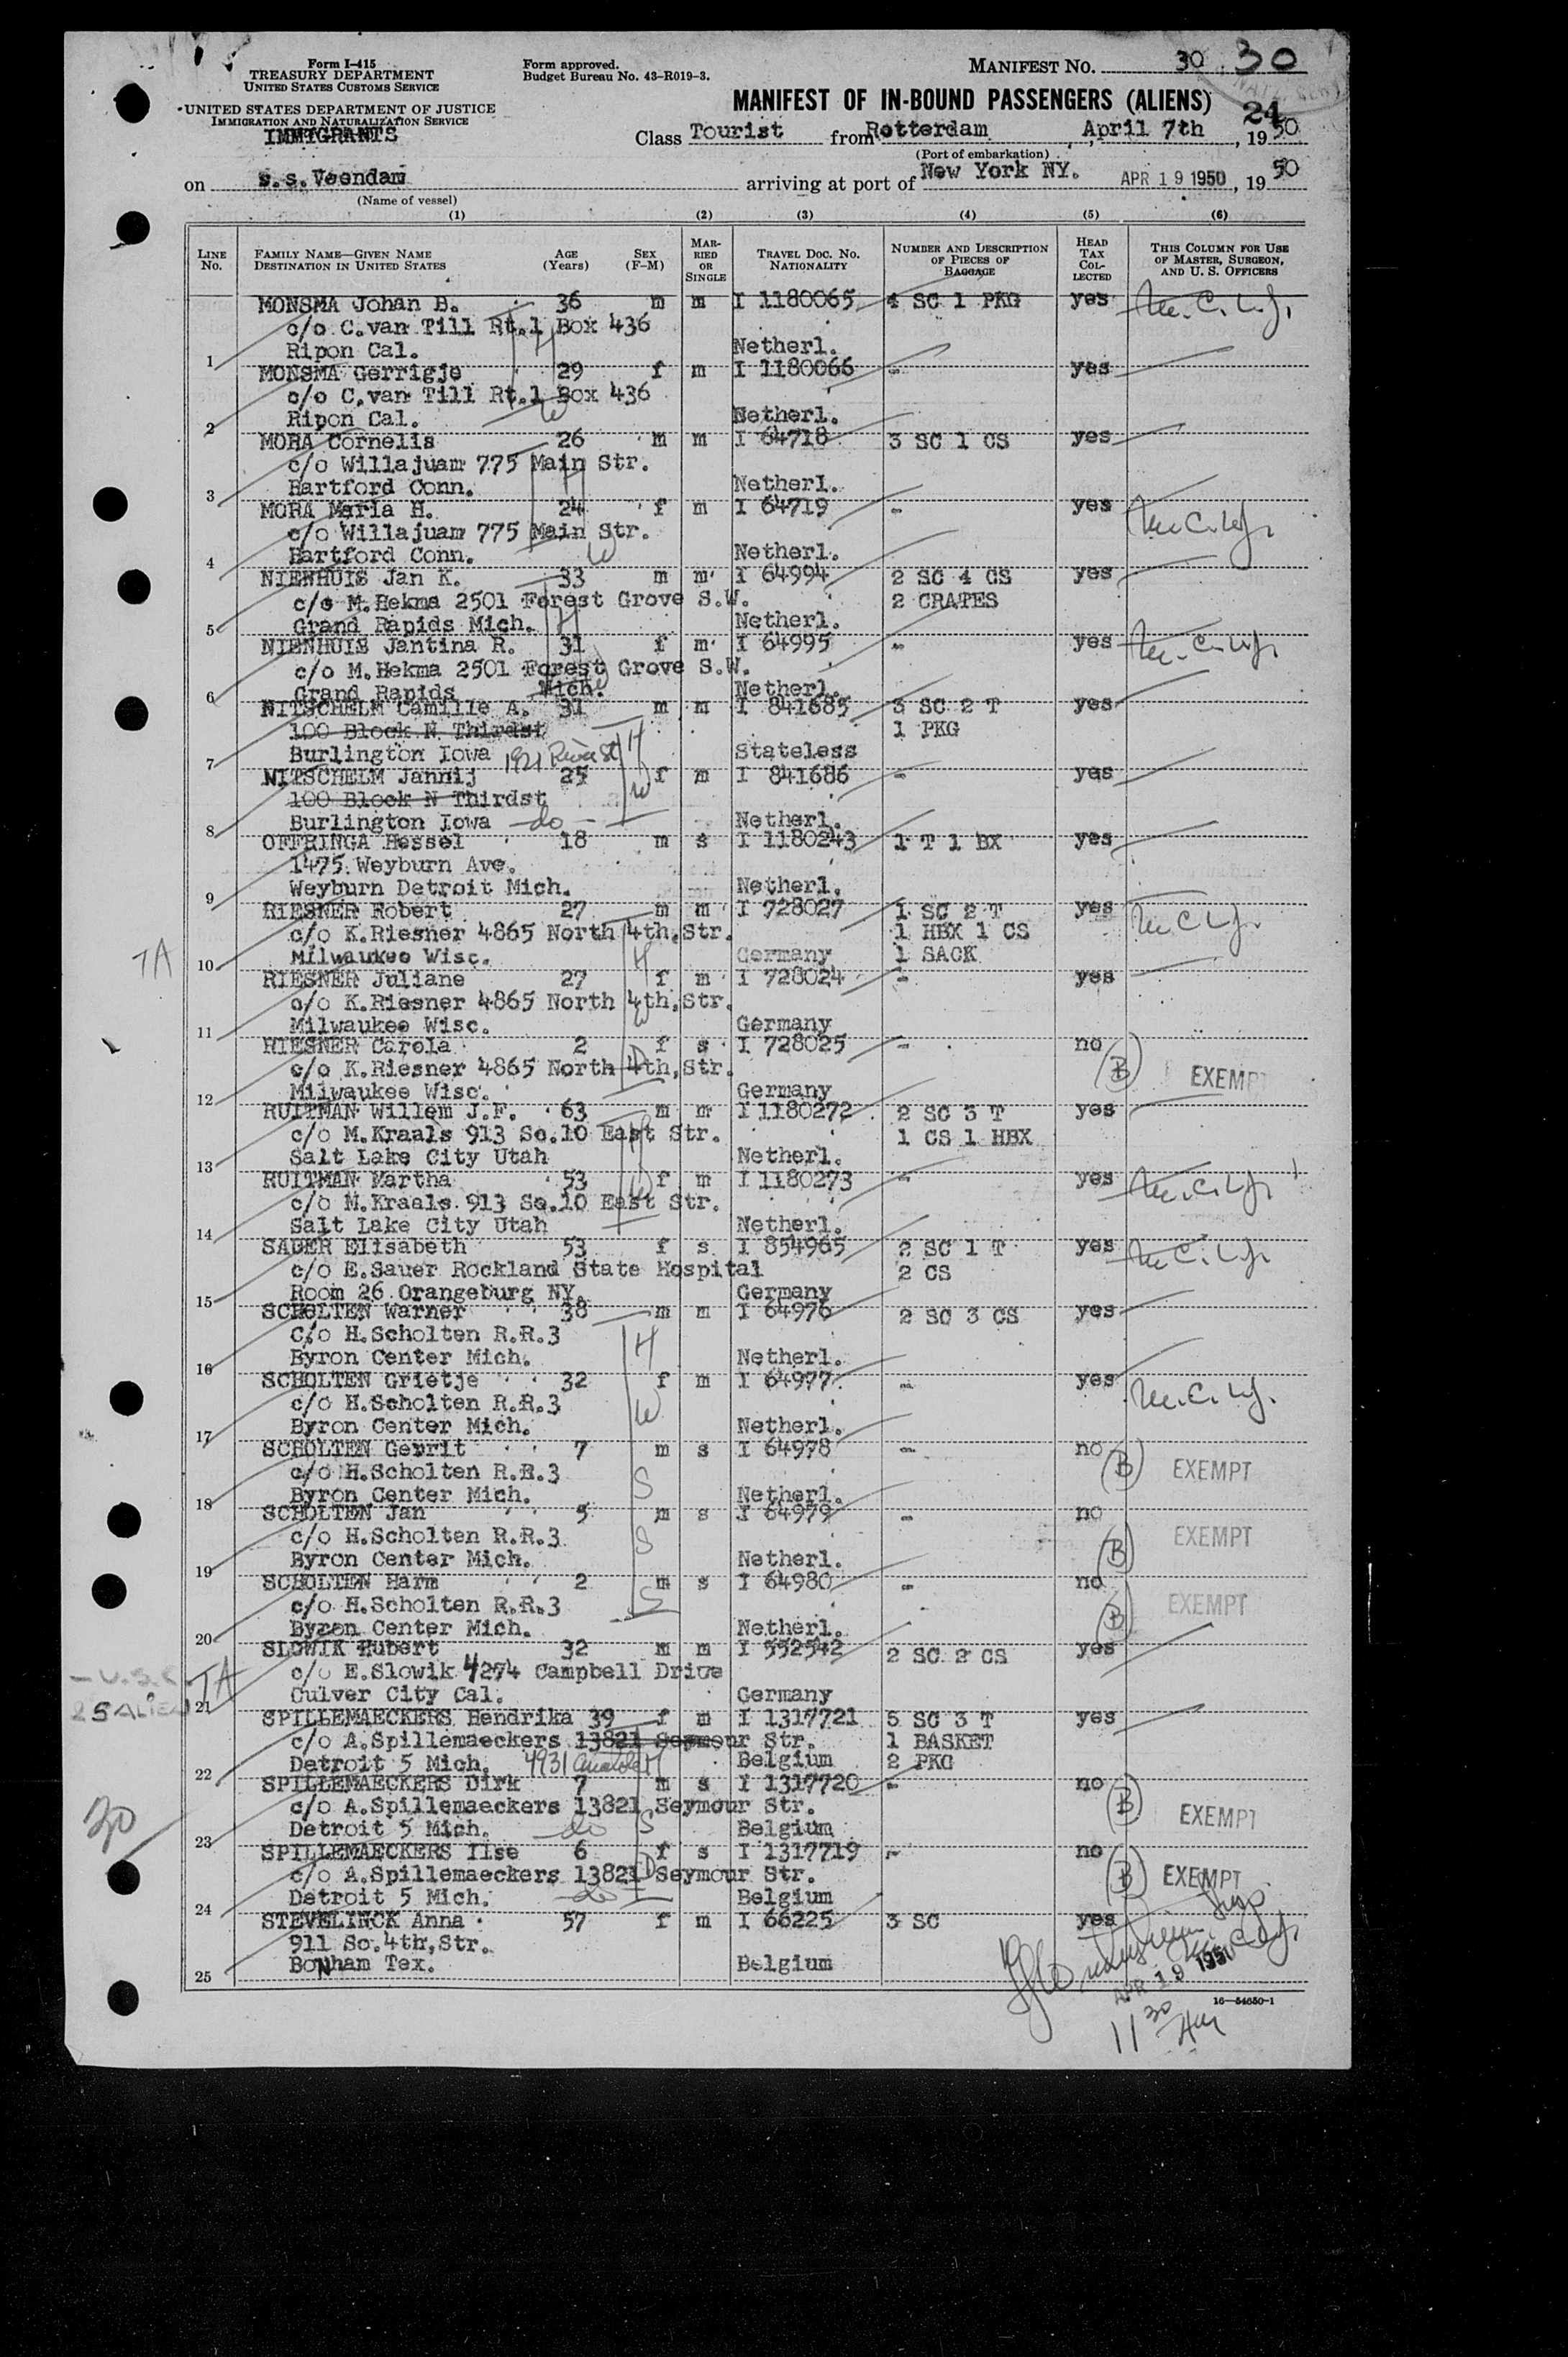 Form I-415
TREASURY DEPARTMENT
UNITED STATES CUSTOMS SERVICE
UNITED STATES DEPARTMENT OF JUSTICE
IMMIGRATION AND NATURALIZATION SERVICE
IMMIGRANTS
Form approved.
Budget Bureau No. 43-R019-3.
MANIFEST NO. 30 30
MANIFEST OF IN-BOUND PASSENGERS (ALIENS) 24
Class Tourist from Rotterdam, April 7th, 1950
(Port of embarkation)
on s.s.Veendam arriving at port of New York NY. APR 19 1950, 1950
(Name of vessel)
(1) (2) (3) (4) (5) (6)
LINE NO. FAMILY NAME—GIVEN NAME DESTINATION IN UNITED STATES AGE (YEARS) SEX (F-M) MARRIED OR SINGLE TRAVEL DOC. NO. NATIONALITY NUMBER AND DESCRIPTION OF PIECES OF BAGGAGE HEAD TAX COLLECTED THIS COLUMN FOR USE OF MASTER, SURGEON, AND U. S. OFFICERS
MONSMA Johan B. 36 m m I 1180065 4 SC 1 PKG yes
c/o C.van Till Rt.1 Box 436 H
1 Ripon Cal. Netherl.
MONSMA Gerrigje 29 f m I 1180066 - yes
c/o C.van Till Rt.1 Box 436 W
2 Ripon Cal. Netherl.
MORA Cornelis 26 m m I 64718 3 SC 1 CS yes
c/o Willajuam 775 Main Str. H
3 Hartford Conn. Netherl.
MORA Maria H. 24 f m I 64719 - yes
c/o Willajuam 775 Main Str. W
4 Hartford Conn. Netherl.
NIENHUIS Jan K. 33 m m I 64994 2 SC 4 CS yes
c/o M.Hekma 2501 Forest Grove S.W. 2 CRATES
5 Grand Rapids Mich. H Netherl.
NIENHUIS Jantina R. 31 f m I 64995 - yes
c/o M.Hekma 2501 Forest Grove S.W.
6 Grand Rapids Mich. Netherl.
NITSCHELM Camille A. 31 m m I 841685 3 SC 2 T yes
100 Block N Thirdst H 1 PKG
7 Burlington Iowa 1921 River St Stateless
NITSCHELM Jannij 25 f m I 841686 - yes
100 Block N Thirdst W
8 Burlington Iowa -do- Netherl.
OFFRINGA Hessel 18 m s I 1180243 1 T 1 BX yes
1475 Weyburn Ave.
9 Weyburn Detroit Mich. Netherl.
RIESNER Robert 27 m m I 728027 1 SC 2 T yes
c/o K.Riesner 4865 North 4th,Str. 1 HBX 1 CS
TA 10 Milwaukee Wisc. H Germany 1 SACK
RIESNER Juliane 27 f m I 728024 - yes
c/o K.Riesner 4865 North 4th,Str. W
11 Milwaukee Wisc. Germany
RIESNER Carola 2 f s I 728025 - no B EXEMPT
c/o K.Riesner 4865 North 4th,Str. D
12 Milwaukee Wisc. Germany
RUITMAN Willem J.F. 63 m m I 1180272 2 SC 3 T yes
c/o M.Kraals 913 So.10 East Str. H 1 CS 1 HBX
13 Salt Lake City Utah Netherl.
RUITMAN Martha 53 f m I 1180273 - yes
c/o M.Kraals 913 So.10 East Str. W
14 Salt Lake City Utah Netherl.
SAUER Elisabeth 53 f s I 854965 2 SC 1 T yes
c/o E.Sauer Rockland State Hospital 2 CS
15 Room 26 Orangeburg NY. Germany
SCHOLTEN Warner 38 m m I 64976 2 SC 3 CS yes
c/o H.Scholten R.R.3 H
16 Byron Center Mich. Netherl.
SCHOLTEN Grietje 32 f m I 64977 - yes
c/o H.Scholten R.R.3 W
17 Byron Center Mich. Netherl.
SCHOLTEN Gerrit 7 m s I 64978 - no B EXEMPT
c/o H.Scholten R.R.3 S
18 Byron Center Mich. Netherl.
SCHOLTEN Jan 5 m s I 64979 - no B EXEMPT
c/o H.Scholten R.R.3 S
19 Byron Center Mich. Netherl.
SCHOLTEN Harm 2 m s I 64980 - no B EXEMPT
c/o H.Scholten R.R.3 S
20 Byron Center Mich. Netherl.
SLOWIK Hubert 32 m m I 552542 2 SC 2 CS yes
- U.S.C TA c/o E.Slowik 4274 Campbell Drive
25 ALIEN 21 Culver City Cal. Germany
SPILLEMAECKERS Hendrika 39 f m I 1317721 5 SC 3 T yes
c/o A.Spillemaeckers 13821 Seymour Str. 1 BASKET
22 Detroit 5 Mich. 4931 Anatole M Belgium 2 PKG
SPILLEMAECKERS Dirk 7 m s I 1317720 - no B EXEMPT
30 c/o A.Spillemaeckers 13821 Seymour Str. S
23 Detroit 5 Mich. do Belgium
SPILLEMAECKERS Ilse 6 f s I 1317719 - no B EXEMPT
c/o A.Spillemaeckers 13821 Seymour Str. D
24 Detroit 5 Mich. do Belgium
STEVELINCK Anna 57 f m I 66225 3 SC yes
911 So.4th,Str.
25 BoNham Tex. Belgium
APR 19 1950
16—54650-1
11 30 AM